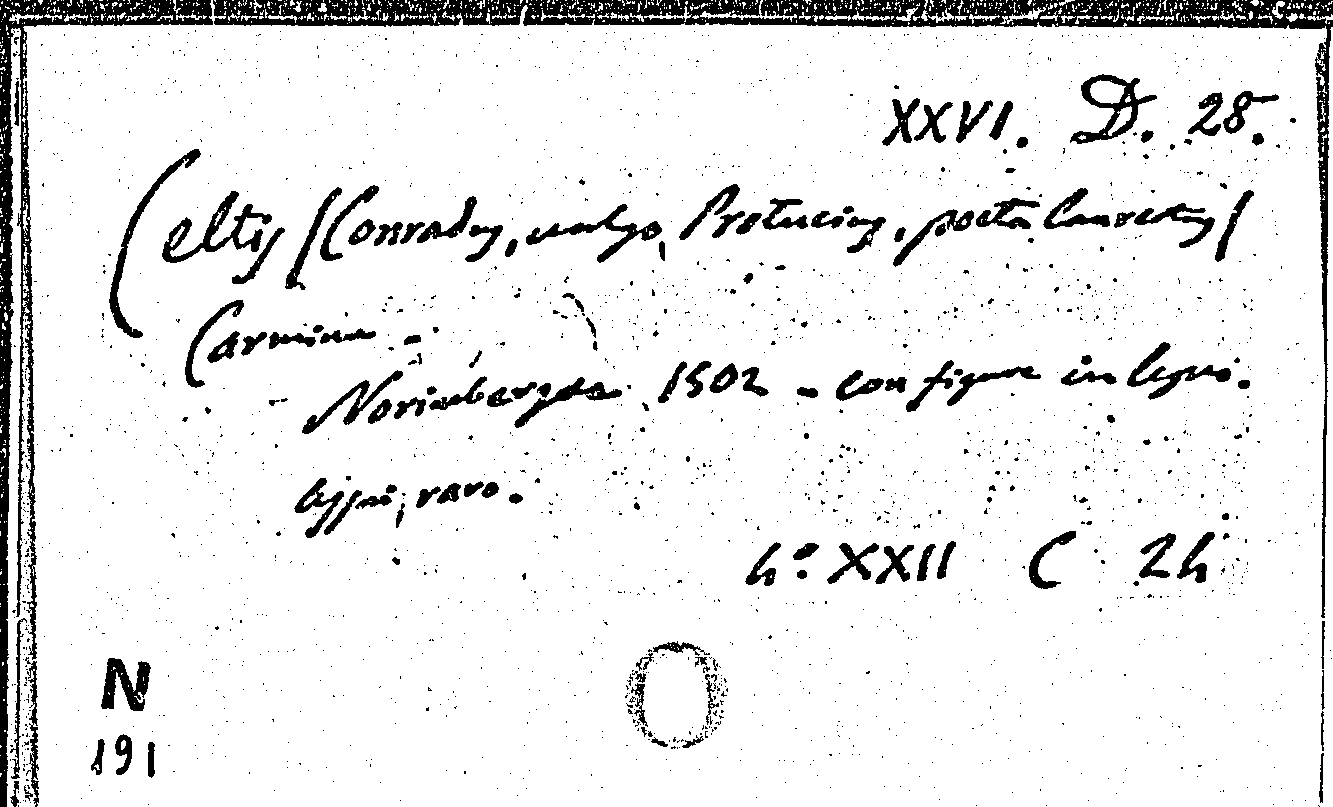 XXVI. D. 28.
Celtis /Conradus, vulgo, Protucius, poeta laureatus/
Carmina -
Norimbergae 1502 - con figure in legni.
raro.
4° XXII C 24
N
191